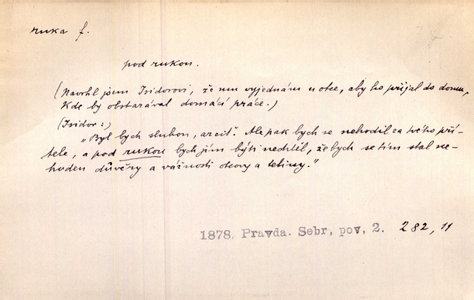 ruka f.
pod rukou.
(Navrhl jsem Isidorovi, že mu vyjednám u otce, aby ho přijal do domu,
kde by obstarával domácí práce.)
(Isidor:)
„Byl bych sluhou, arciť. Ale pak bych se nehodil za tvého pří-
tele, a pod rukou bych jím býti nechtěl, že bych se tím stal ne-
hoden důvěry a vážnosti otcovy a tetiny."
1878, Pravda. Sebr, pov, 2. 282, 11